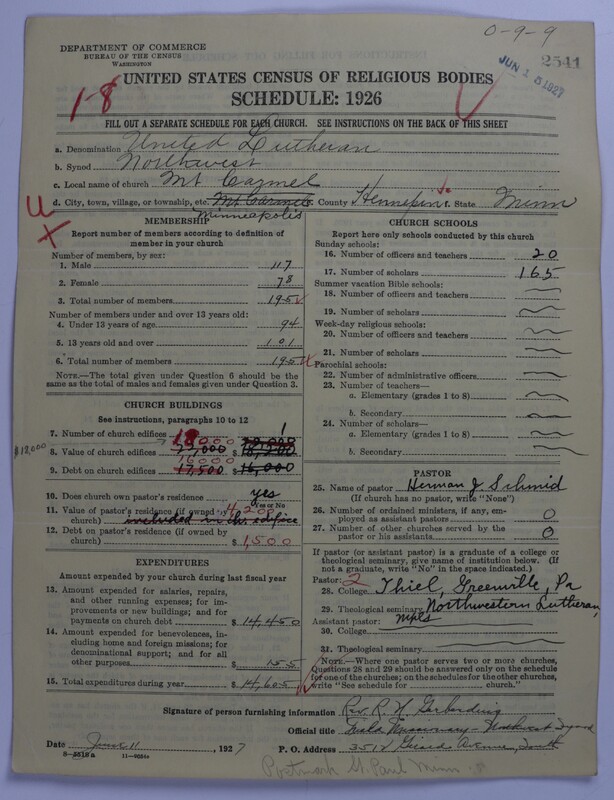 0-9-9
DEPARTMENT OF COMMERCE
BUREAU OF THE CENSUS
WASHINGTON
JUN 15 1927
2541
1-8
UNITED STATES CENSUS OF RELIGIOUS BODIES
SCHEDULE: 1926
FILL OUT A SEPARATE SCHEDULE FOR EACH CHURCH. SEE INSTRUCTIONS ON THE BACK OF THIS SHEET
a. Denomination United Lutheran
b. Synod Northwest
c. Local name of church Mt Carmel
d. City, town, village, or township, etc. Mt Carmel County Hennepin State Minn
Minneapolis
MEMBERSHIP
Report number of members according to definition of
member in your church
Number of members, by sex:
1. Male 117
2. Female 78
3. Total number of members 195
Number of members under and over 13 years old:
4. Under 13 years of age 94
5. 13 years old and over 101
6. Total number of members 195
NOTE.—The total given under Question 6 should be the
same as the total of males and females given under Question 3.
CHURCH BUILDINGS
See instructions, paragraphs 10 to 12
7. Number of church edifices 1
$18,000
8. Value of church edifices
16000
9. Debt on church edifices 17,500 $ 16,000
10. Does church own pastor's residence yes
Yes or No
11. Value of pastor's residence (if owned by
church) included in ch. edifice
4,200
12. Debt on pastor's residence (if owned by
church) $ 1,500
EXPENDITURES
Amount expended by your church during last fiscal year
13. Amount expended for salaries, repairs,
and other running expenses; for im-
provements or new buildings; and for
payments on church debt $ 14,450
14. Amount expended for benevolences, in-
cluding home and foreign missions; for
denominational support; and for all
other purposes $ 155
15. Total expenditures during year $ 14,605
CHURCH SCHOOLS
Report here only schools conducted by this church
Sunday schools:
16. Number of officers and teachers 20
17. Number of scholars 165
Summer vacation Bible schools:
18. Number of officers and teachers
19. Number of scholars
Week-day religious schools:
20. Number of officers and teachers
21. Number of scholars
Parochial schools:
22. Number of administrative officers
23. Number of teachers—
a. Elementary (grades 1 to 8)
b. Secondary
24. Number of scholars—
a. Elementary (grades 1 to 8)
b. Secondary
PASTOR
25. Name of pastor Herman J Schmid
(If church has no pastor, write "None")
26. Number of ordained ministers, if any, em-
ployed as assistant pastors 0
27. Number of other churches served by the
pastor or his assistants 0
If pastor (or assistant pastor) is a graduate of a college or
theological seminary, give name of institution below. (If
not a graduate, write "No" in the space indicated.)
Pastor: 2
28. College Thiel, Greenville, Pa
29. Theological seminary Northwestern Lutheran,
Assistant pastor: Mpls
30. College
31. Theological seminary
NOTE.—Where one pastor serves two or more churches,
Questions 28 and 29 should be answered only on the schedule
for one of the churches; on the schedules for the other churches,
write "See Schedule for church."
Signature of person furnishing information Rev. R. H. Gerberding
Official title Field Missionary - Northwest Synod
Date June 11, 1927 P. O. Address 3512 Girard Avenue, South
8-5518a 11-9684a
Postmark St. Paul Minn